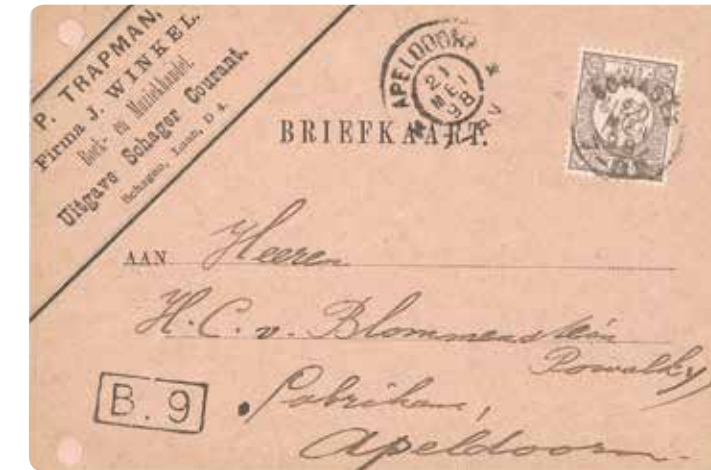 P. TRAPMAN,
Firma J. WINKEL.
Boek- en Muziekhandel.
Uitgave Schager Courant.
Schagen, Laan, D 4.
APELDOORN
21
MEI
98
BRIEFKAART.
AAN Heeren
H. C. v. Blommenstein
Powalky
Fabrikant,
Apeldoorn.
B. 9